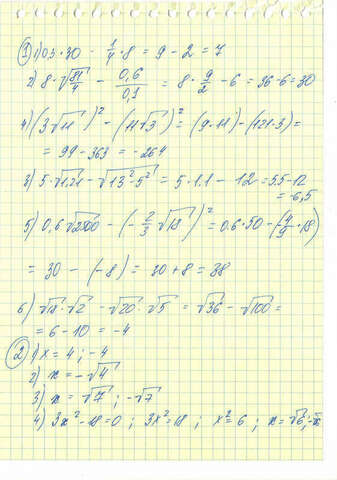 ① 1) 0,3·30 - 1/4·8 = 9 - 2 = 7
2) 8·√(81/4) - 0,6/0,1 = 8·9/2 - 6 = 36-6=30
4) (3√11)² - (11√3)² = (9·11) - (121·3) =
= 99 - 363 = -264
3) 5·√1.21 - √(13²-5²) = 5·1.1 - 12 = 5.5-12
= -6,5
5) 0,6√2500 - (-2/3√18)² = 0.6·50 - (4/9·18)
= 30 - (-8) = 30 + 8 = 38
6) √18·√2 - √20·√5 = √36 - √100 =
= 6 - 10 = -4
② 1) x = 4 ; -4
2) x = -√4
3) x = √7 ; -√7
4) 3x² - 18 = 0 ; 3x² = 18 ; x² = 6 ; x = √6;